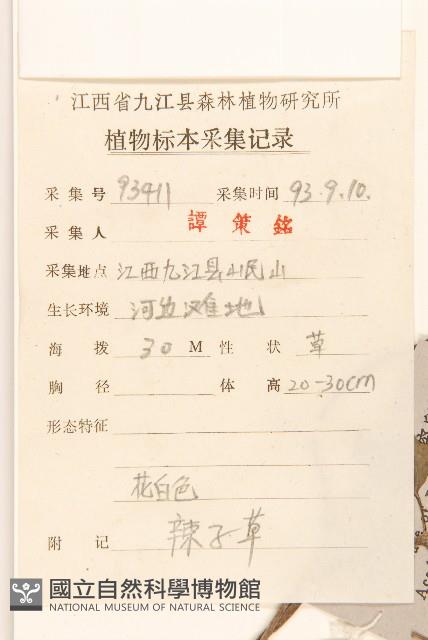 江西省九江县森林植物研究所
植物标本采集记录
采集号 93411 采集时间 93.9.10.
采集人 譚策銘
采集地点 江西九江县岷山
生长环境 河边滩地
海拨 30 M 性状 草
胸径 体高 20-30cm
形态特征
花白色
附记 辣子草
國立自然科學博物館
NATIONAL MUSEUM OF NATURAL SCIENCE